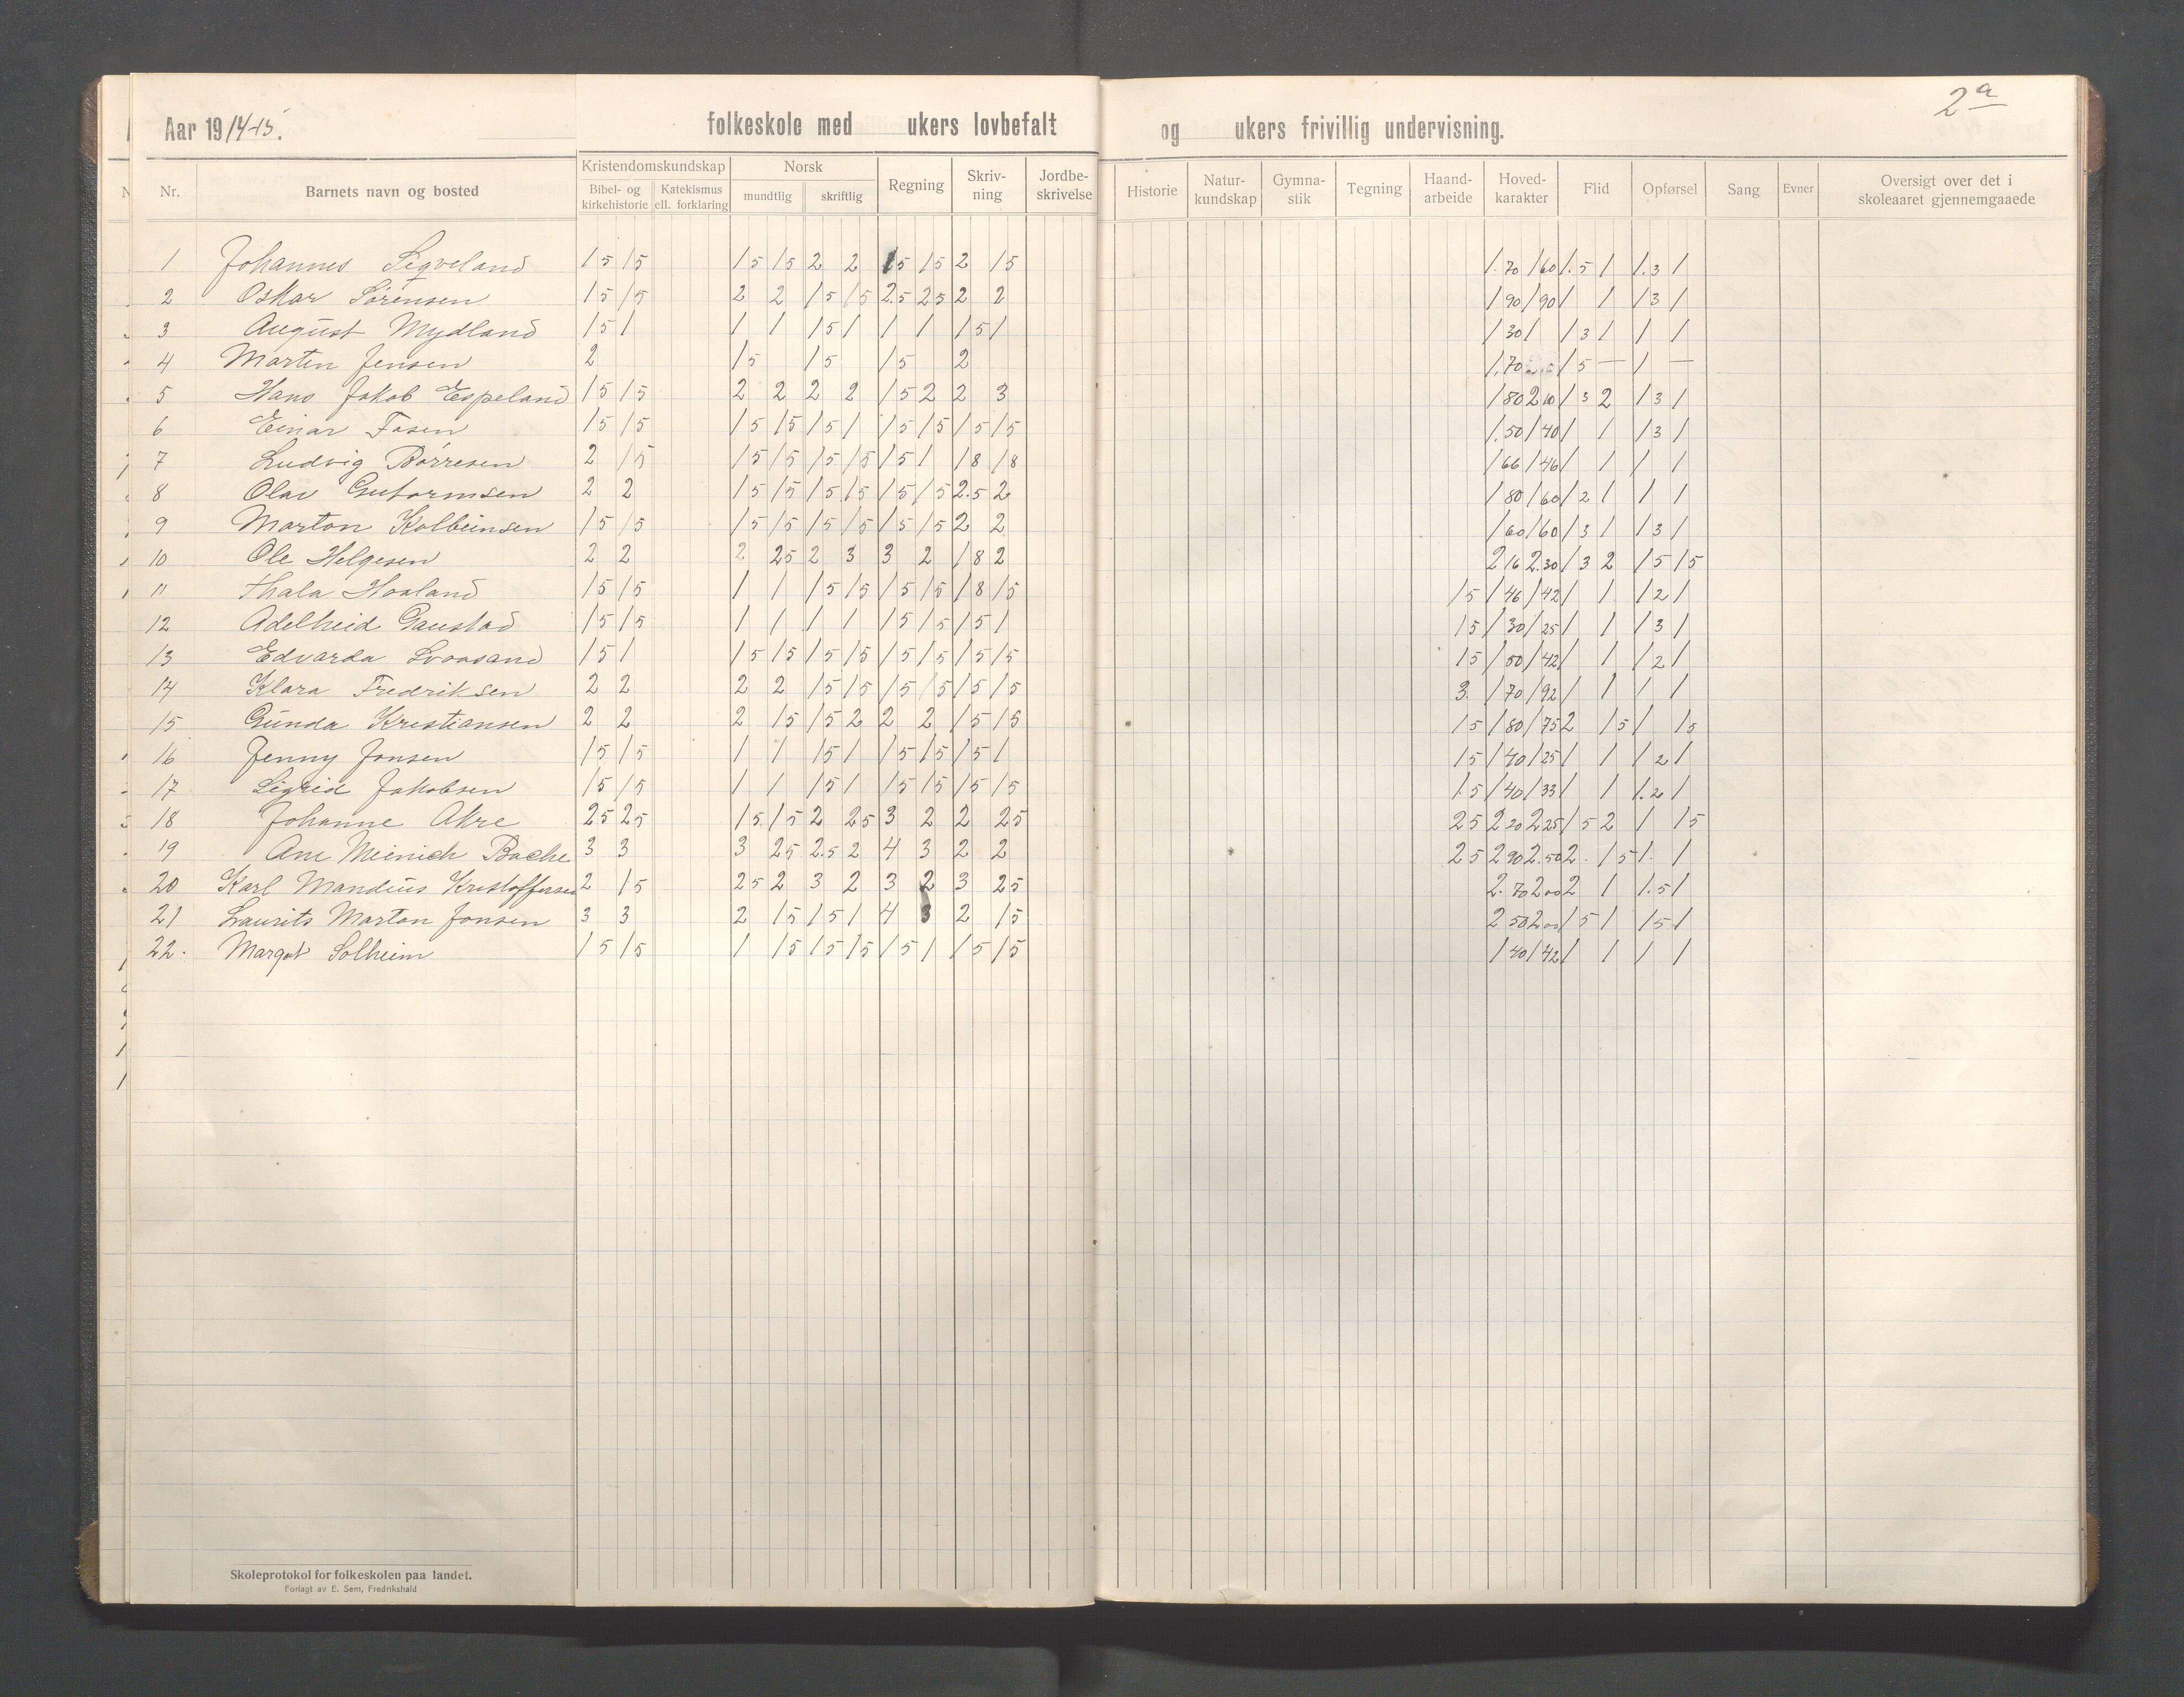 2a
Aar 1914-15. folkeskole med ukers lovbefalt og ukers frivillig undervisning.
Nr. Barnets navn og bosted Kristendomskundskap Bibel- og kirkehistorie Katekismus ell. forklaring Norsk mundtlig skriftlig Regning Skriv-ning Jordbe-skrivelse Historie Natur-kundskap Gymna-stik Tegning Haand-arbeide Hoved-karakter Flid Opførsel Sang Evner Oversigt over det i skoleaaret gjennemgaaede
1 Johannes Sigveland 15 15 15 15 2 2 15 15 2 15 1.70 160 1.5 1 1.3 1
2 Oskar Sörensen 15 15 2 2 15 15 2.5 25 2 2 190 190 1 1 13 1
3 August Mydland 15 1 1 1 15 1 1 1 15 1 130 1 13 1 1 1
4 Martin Jensen 2 15 15 15 2 1.70 15 — 1 —
5 Hans Jakob Espeland 15 15 2 2 2 2 15 2 2 3 180 210 13 2 13 1
6 Einar Fosen 15 15 15 15 15 1 15 15 15 15 1.50 140 1 1 13 1
7 Ludvig Börresen 2 15 15 15 15 15 15 1 18 18 166 146 1 1 1 1
8 Olav Gutormsen 2 2 15 15 15 15 15 15 2.5 2 180 160 12 1 1 1
9 Marton Kolbeinsen 15 15 15 15 15 15 15 15 2 2 160 160 13 1 13 1
10 Ole Helgesen 2 2 2 25 2 3 3 2 18 2 216 2.30 13 2 15 15
11 Thala Hoaland 15 15 1 1 15 15 15 15 18 15 15 146 142 1 1 12 1
12 Adelheid Gaustad 15 15 1 1 1 1 15 15 15 1 15 130 125 1 1 13 1
13 Edvarda 15 1 15 15 15 15 15 15 15 15 15 150 142 1 1 12 1
14 Klara Fredriksen 2 2 2 2 15 15 15 15 15 15 3. 170 192 1 1 1 1
15 Gunda Kristiansen 2 2 2 15 15 2 2 2 15 15 15 180 175 2 15 1 15
16 Jenny Jonsen 15 15 1 1 15 1 15 15 15 1 15 140 125 1 1 12 1
17 Sigrid Jakobsen 15 15 1 1 15 1 15 15 15 15 1.5 140 133 1 1 1.2 1
18 Johanne Akre 25 25 15. 15 2 25 3 2 2 25 25 220 225 15 2 1 15
19 Ane Meinich Bache 3 3 3 25 2.5 2 4 3 2 2 25 290 2.50 2. 15 1. 1
20 Karl Mandius Kristoffersen 2 15 25 2 3 2 3 2 3 25 2.70 200 2 1 1.5 1
21 Laurits Marton Jonsen 3 3 2 15 15 1 4 3 2 15 250 200 15 1 15 1
22. Margot Solheim 15 15 1 15 15 15 15 1 15 15 140 142 1 1 1 1
Skoleprotokol for folkeskolen paa landet.
Forlagt av E. Sem, Fredrikshald